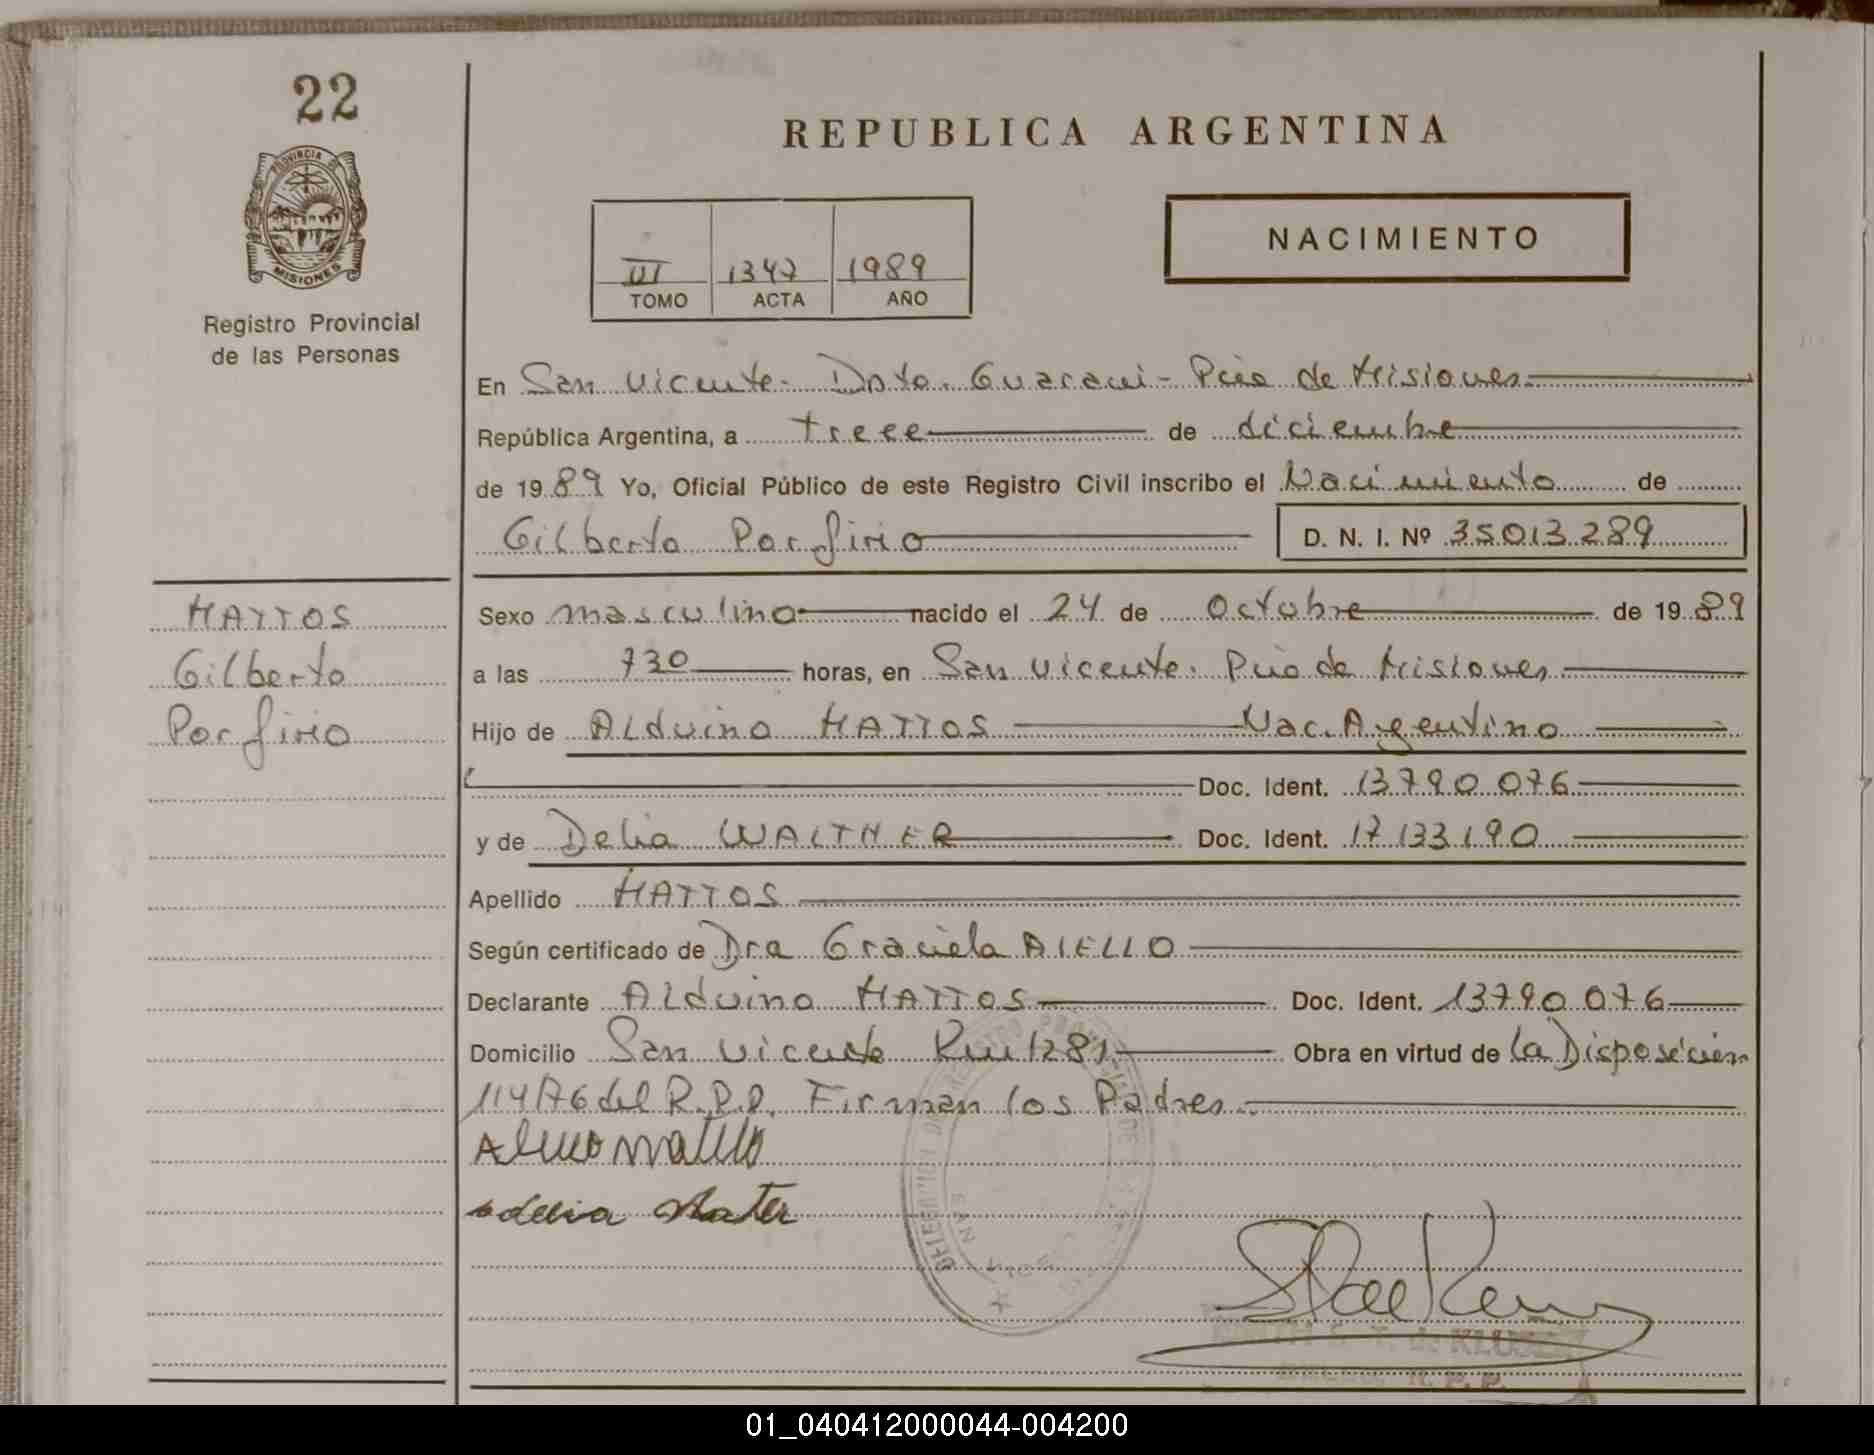 22
PROVINCIA DE
MISIONES
Registro Provincial
de las Personas
REPUBLICA ARGENTINA
III 1347 1989
TOMO ACTA AÑO
NACIMIENTO
En San Vicente. Dpto. Guarani - Pcia de Misiones
República Argentina, a trece de diciembre
de 1989 Yo, Oficial Público de este Registro Civil inscribo el Nacimiento de
Gilberto Porfirio D. N. I. Nº 35013289
MATTOS
Gilberto
Porfirio
Sexo masculino nacido el 24 de Octubre de 1989
a las 730 horas, en San Vicente. Pcia de Misiones
Hijo de Alduino MATTOS Nac. Argentino
Doc. Ident. 13790076
y de Delia WALTHER Doc. Ident. 17133190
Apellido MATTOS
Según certificado de Dra Graciela AIELLO
Declarante Alduino MATTOS Doc. Ident. 13790076
Domicilio San Vicente Km 1281 Obra en virtud de la Disposición
114/76 del R.P.P. Firman los Padres
DELEGACION DE REGISTRO PROVINCIAL DE
SAN VICENTE
KLUSEN
R. P. P.
01_040412000044-004200